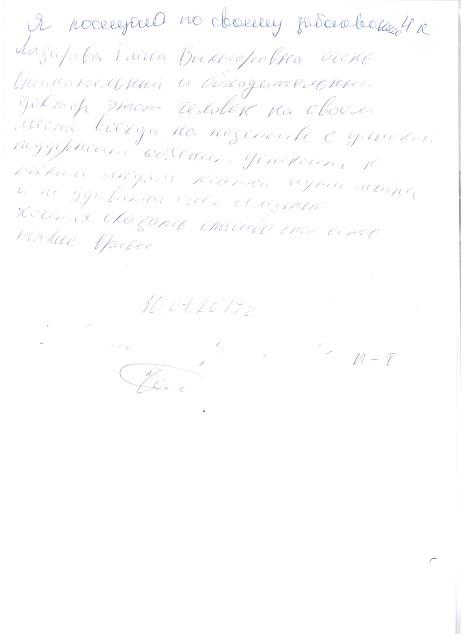 Я посещаю по своему заболеванию 4 к
Лазарева Елена Викторовна очень
внимательный и обходительный
доктор этот человек на своем
месте всегда на позитиве с улыбкой
поддержит объяснит успокоит к
таким людям хочется идти
и не
хочется сказать спасибо что есть
такие врачи
10.01.2017г
И-Т